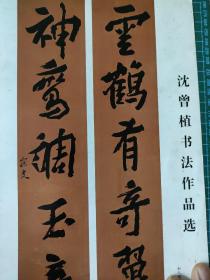 沈曾植书法作品选
雲鶴有奇翼
神鸾調玉音